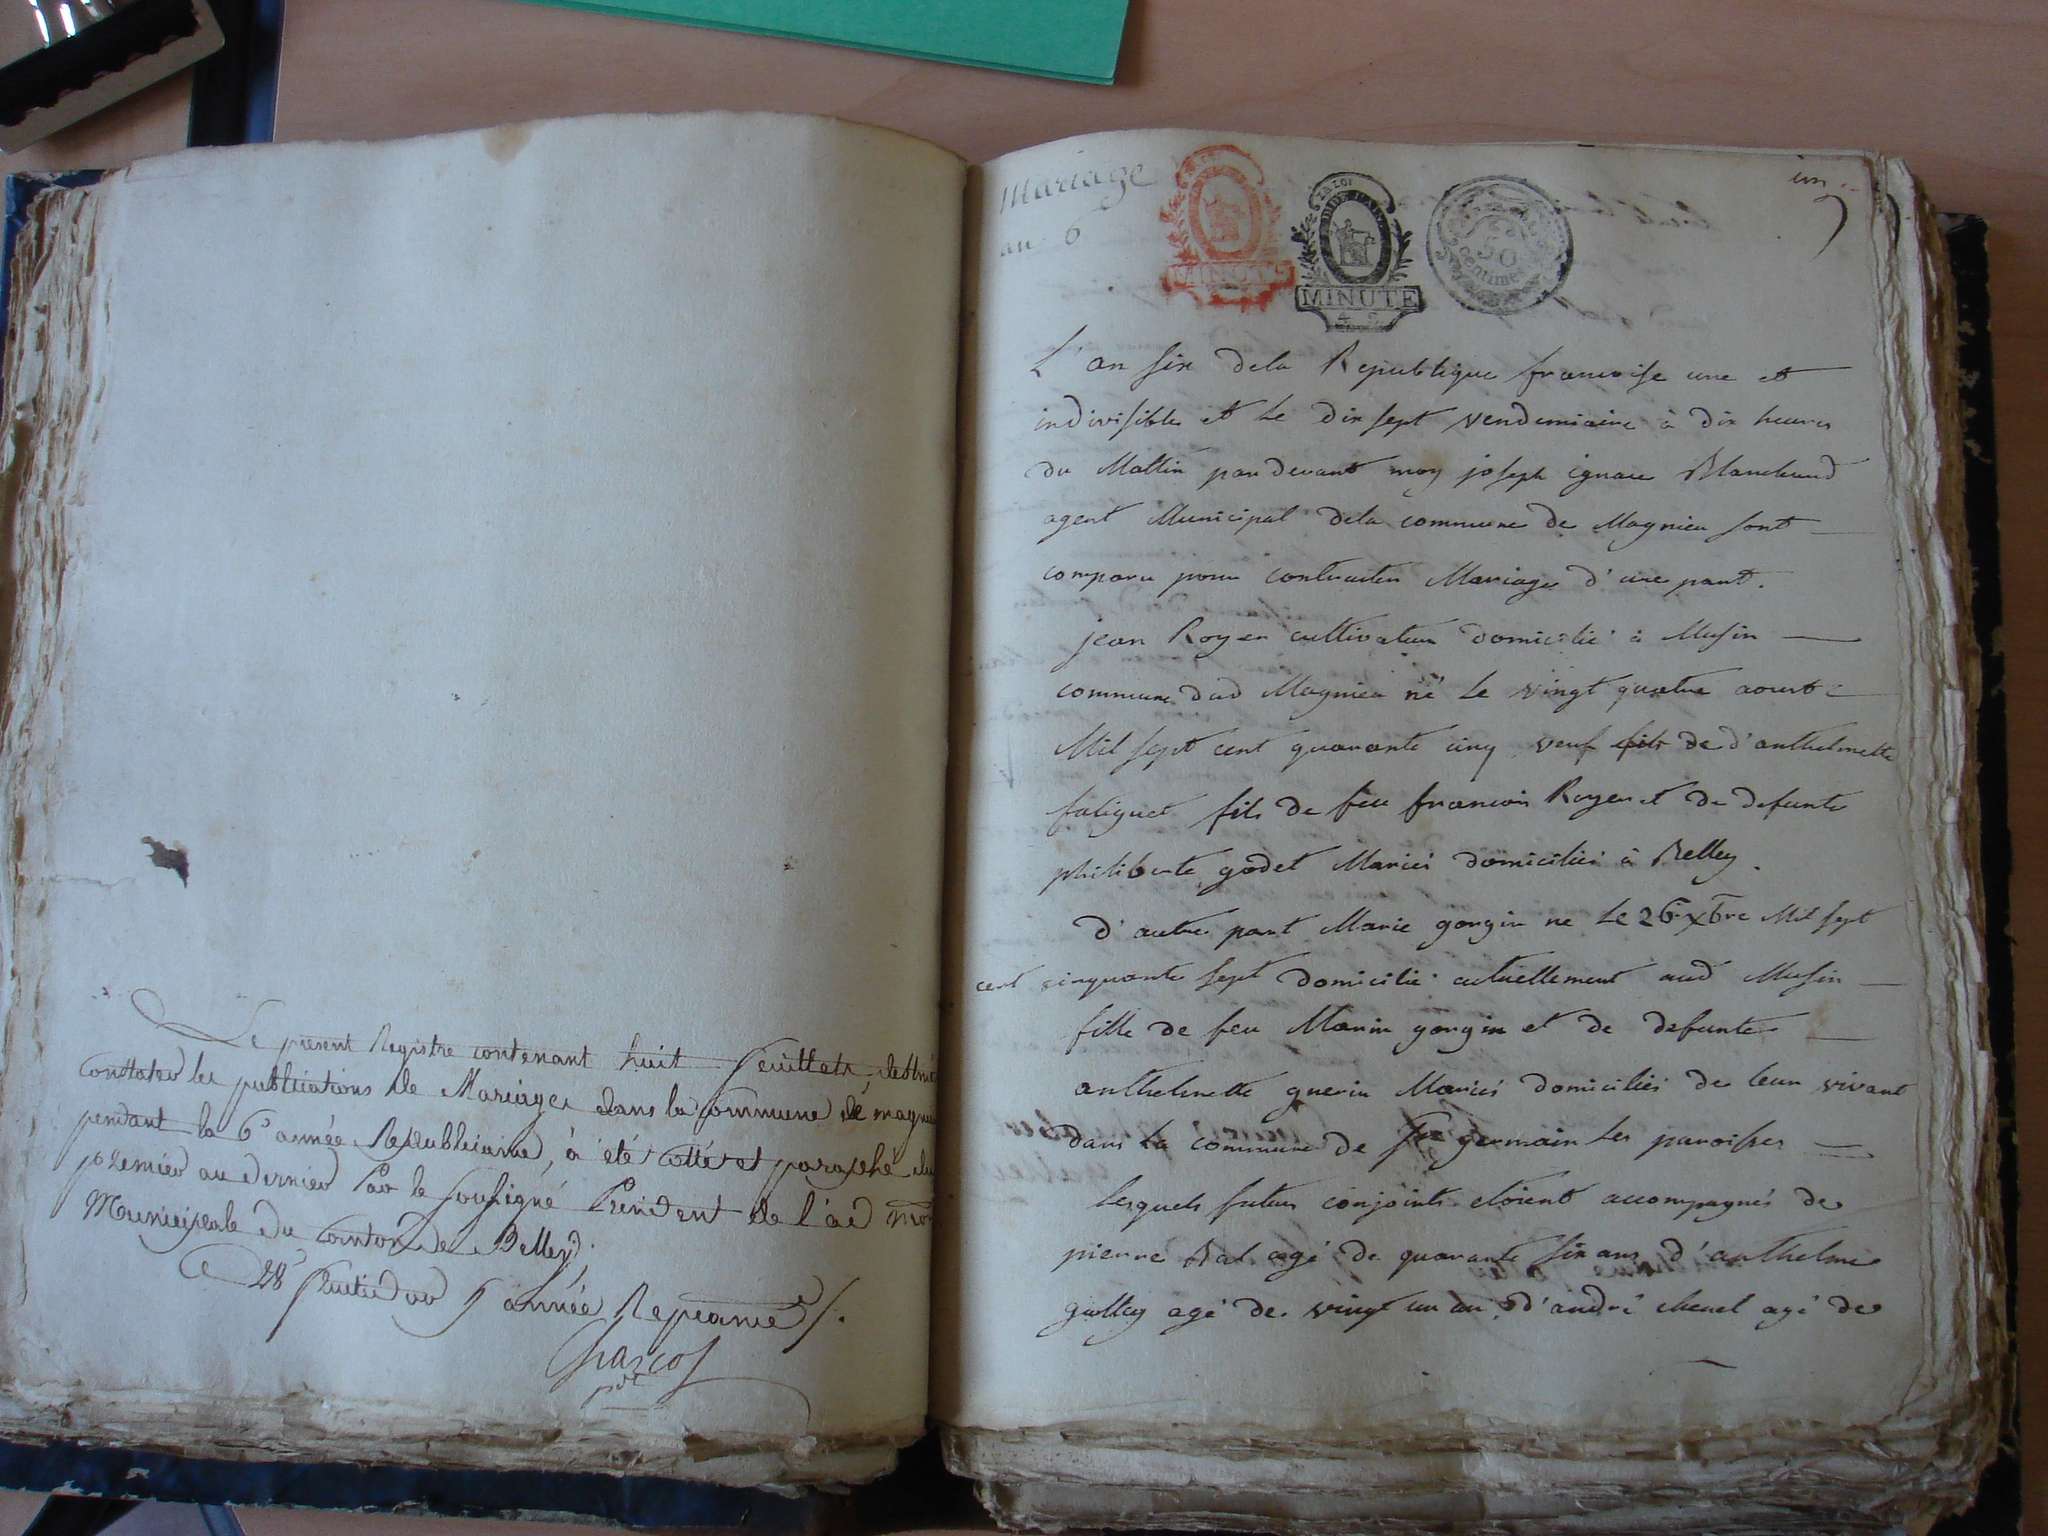 Le présent Registre contenant huit feuillets, destiné
constater les publications de Mariages dans la Commune de magnieu
pendant la 6e année Republicaine, à été cotté et paraphé du
premier au dernier Par le soussigné Président de l'ad mon
Municipale du Canton de Belley,
Ce 28 fructidor 5 année Repcaine
pdt
Mariage
an 6
MINUTE
MINUTE
50
centimes
un
L'an six dela Republique francoise une et
indivisible et le dix sept vendemiaire à dix heures
du Mattin pardevant moy joseph ignace Blanchard
agent Municipal dela commune de Magnieu sont
comparu pour contracter Mariage d'une part.
jean Royer cultivateur domicilié à Musin
commune dud Magnieu né le vingt quatre aoust
Mil sept cent quarante cinq veuf fils de d'anthelmette
fils de feu francois Royer et de defunte
philiberte godet Mariés domiciliés à Belley.
d'autre part Marie gorgin ne le 26 xbre Mil sept
cent cinquante sept domicilié actuellement aud Musin
fille de feu Marin gorgin et de defunte
anthelmette guerin Mariés domiciliés de leur vivant
dans la commune de St germain les paroisses
lesquels futurs conjoints etoient accompagnés de
pierre Bal agé de quarante six ans d'anthelme
agé de vingt un an d'andré agé de